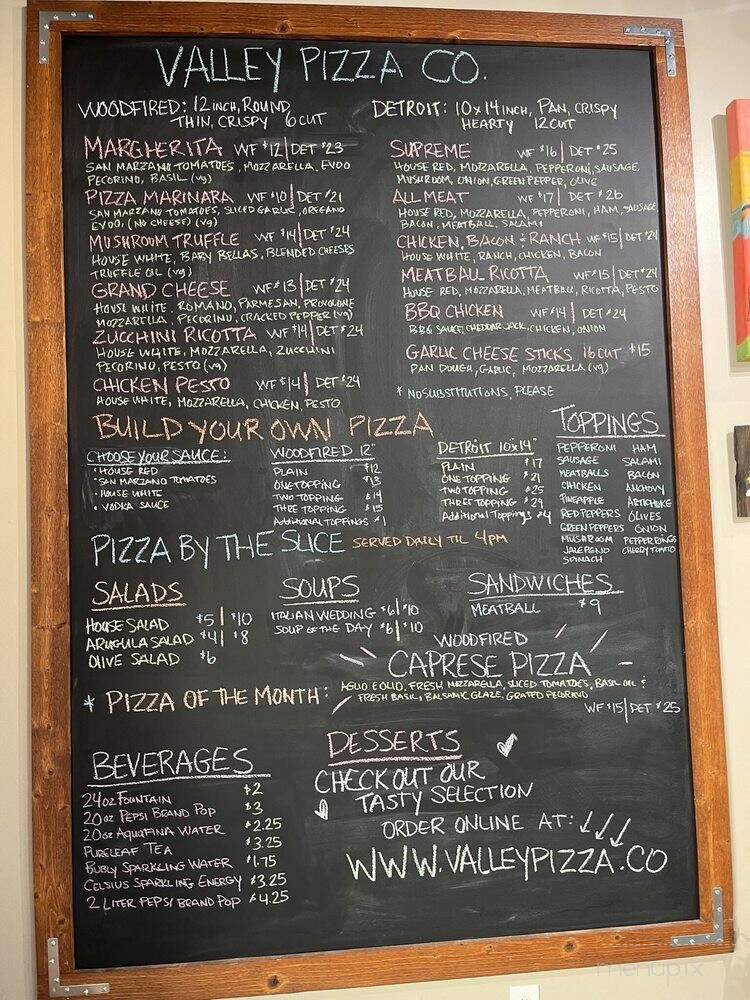 VALLEY PIZZA CO.
WOODFIRED: 12 INCH, ROUND,
THIN, CRISPY 6 CUT
DETROIT: 10x14 INCH, PAN, CRISPY
HEARTY 12 CUT
MARGHERITA WF $12 | DET $23
SAN MARZANO TOMATOES, MOZZARELLA, EVOO
PECORINO, BASIL (vg)
PIZZA MARINARA WF $10 | DET $21
SAN MARZANO TOMATOES, SLICED GARLIC, OREGANO
EVOO, (NO CHEESE) (vg)
MUSHROOM TRUFFLE WF $14 | DET $24
HOUSE WHITE, BABY BELLAS, BLENDED CHEESES
TRUFFLE OIL (vg)
GRAND CHEESE WF $13 | DET $24
HOUSE WHITE, ROMANO, PARMESAN, PROVOLONE
MOZZARELLA, PECORINO, CRACKED PEPPER (vg)
ZUCCHINI RICOTTA WF $14 | DET $24
HOUSE WHITE, MOZZARELLA, ZUCCHINI
PECORINO, PESTO (vg)
CHICKEN PESTO WF $14 | DET $24
HOUSE WHITE, MOZZARELLA, CHICKEN, PESTO
SUPREME WF $16 | DET $25
HOUSE RED, MOZZARELLA, PEPPERONI, SAUSAGE,
MUSHROOM, ONION, GREEN PEPPER, OLIVE
ALL MEAT WF $17 | DET $26
HOUSE RED, MOZZARELLA, PEPPERONI, HAM, SAUSAGE
BACON, MEATBALL, SALAMI
CHICKEN, BACON + RANCH WF $15 | DET $24
HOUSE WHITE, RANCH, CHICKEN, BACON
MEATBALL RICOTTA WF $15 | DET $24
HOUSE RED, MOZZARELLA, MEATBALL, RICOTTA, PESTO
BBQ CHICKEN WF $14 | DET $24
BBQ SAUCE, CHEDDAR JACK, CHICKEN, ONION
GARLIC CHEESE STICKS 16 CUT $15
PAN DOUGH, GARLIC, MOZZARELLA (vg)
* NO SUBSTITUTIONS, PLEASE
BUILD YOUR OWN PIZZA
CHOOSE YOUR SAUCE:
• HOUSE RED
• SAN MARZANO TOMATOES
• HOUSE WHITE
• VODKA SAUCE
WOODFIRED 12"
PLAIN $12
ONE TOPPING $13
TWO TOPPING $14
THREE TOPPING $15
ADDITIONAL TOPPINGS $1
DETROIT 10"x14"
PLAIN $17
ONE TOPPING $21
TWO TOPPING $25
THREE TOPPING $29
ADDITIONAL TOPPINGS $4
TOPPINGS
PEPPERONI HAM
SAUSAGE SALAMI
MEATBALLS BACON
CHICKEN ANCHOVY
PINEAPPLE ARTICHOKE
RED PEPPERS OLIVES
GREEN PEPPERS ONION
MUSHROOM PEPPER RINGS
JALEPENO CHERRY TOMATO
SPINACH
PIZZA BY THE SLICE SERVED DAILY TIL 4PM
SALADS
HOUSE SALAD $5 | $10
ARUGULA SALAD $4 | $8
OLIVE SALAD $6
SOUPS
ITALIAN WEDDING $6 | $10
SOUP OF THE DAY $6 | $10
SANDWICHES
MEATBALL $9
WOODFIRED
CAPRESE PIZZA
* PIZZA OF THE MONTH:
AGLIO E OLIO, FRESH MOZZARELLA, SLICED TOMATOES, BASIL OIL &
FRESH BASIL, BALSAMIC GLAZE, GRATED PECORINO
WF $15 | DET $25
BEVERAGES
24 OZ FOUNTAIN $2
20 OZ PEPSI BRAND POP $3
20 OZ AQUAFINA WATER $2.25
PURELEAF TEA $3.25
BUBLY SPARKLING WATER $1.75
CELSIUS SPARKLING ENERGY $3.25
2 LITER PEPSI BRAND POP $4.25
DESSERTS
CHECK OUT OUR
TASTY SELECTION
ORDER ONLINE AT:
WWW.VALLEYPIZZA.CO
menupix